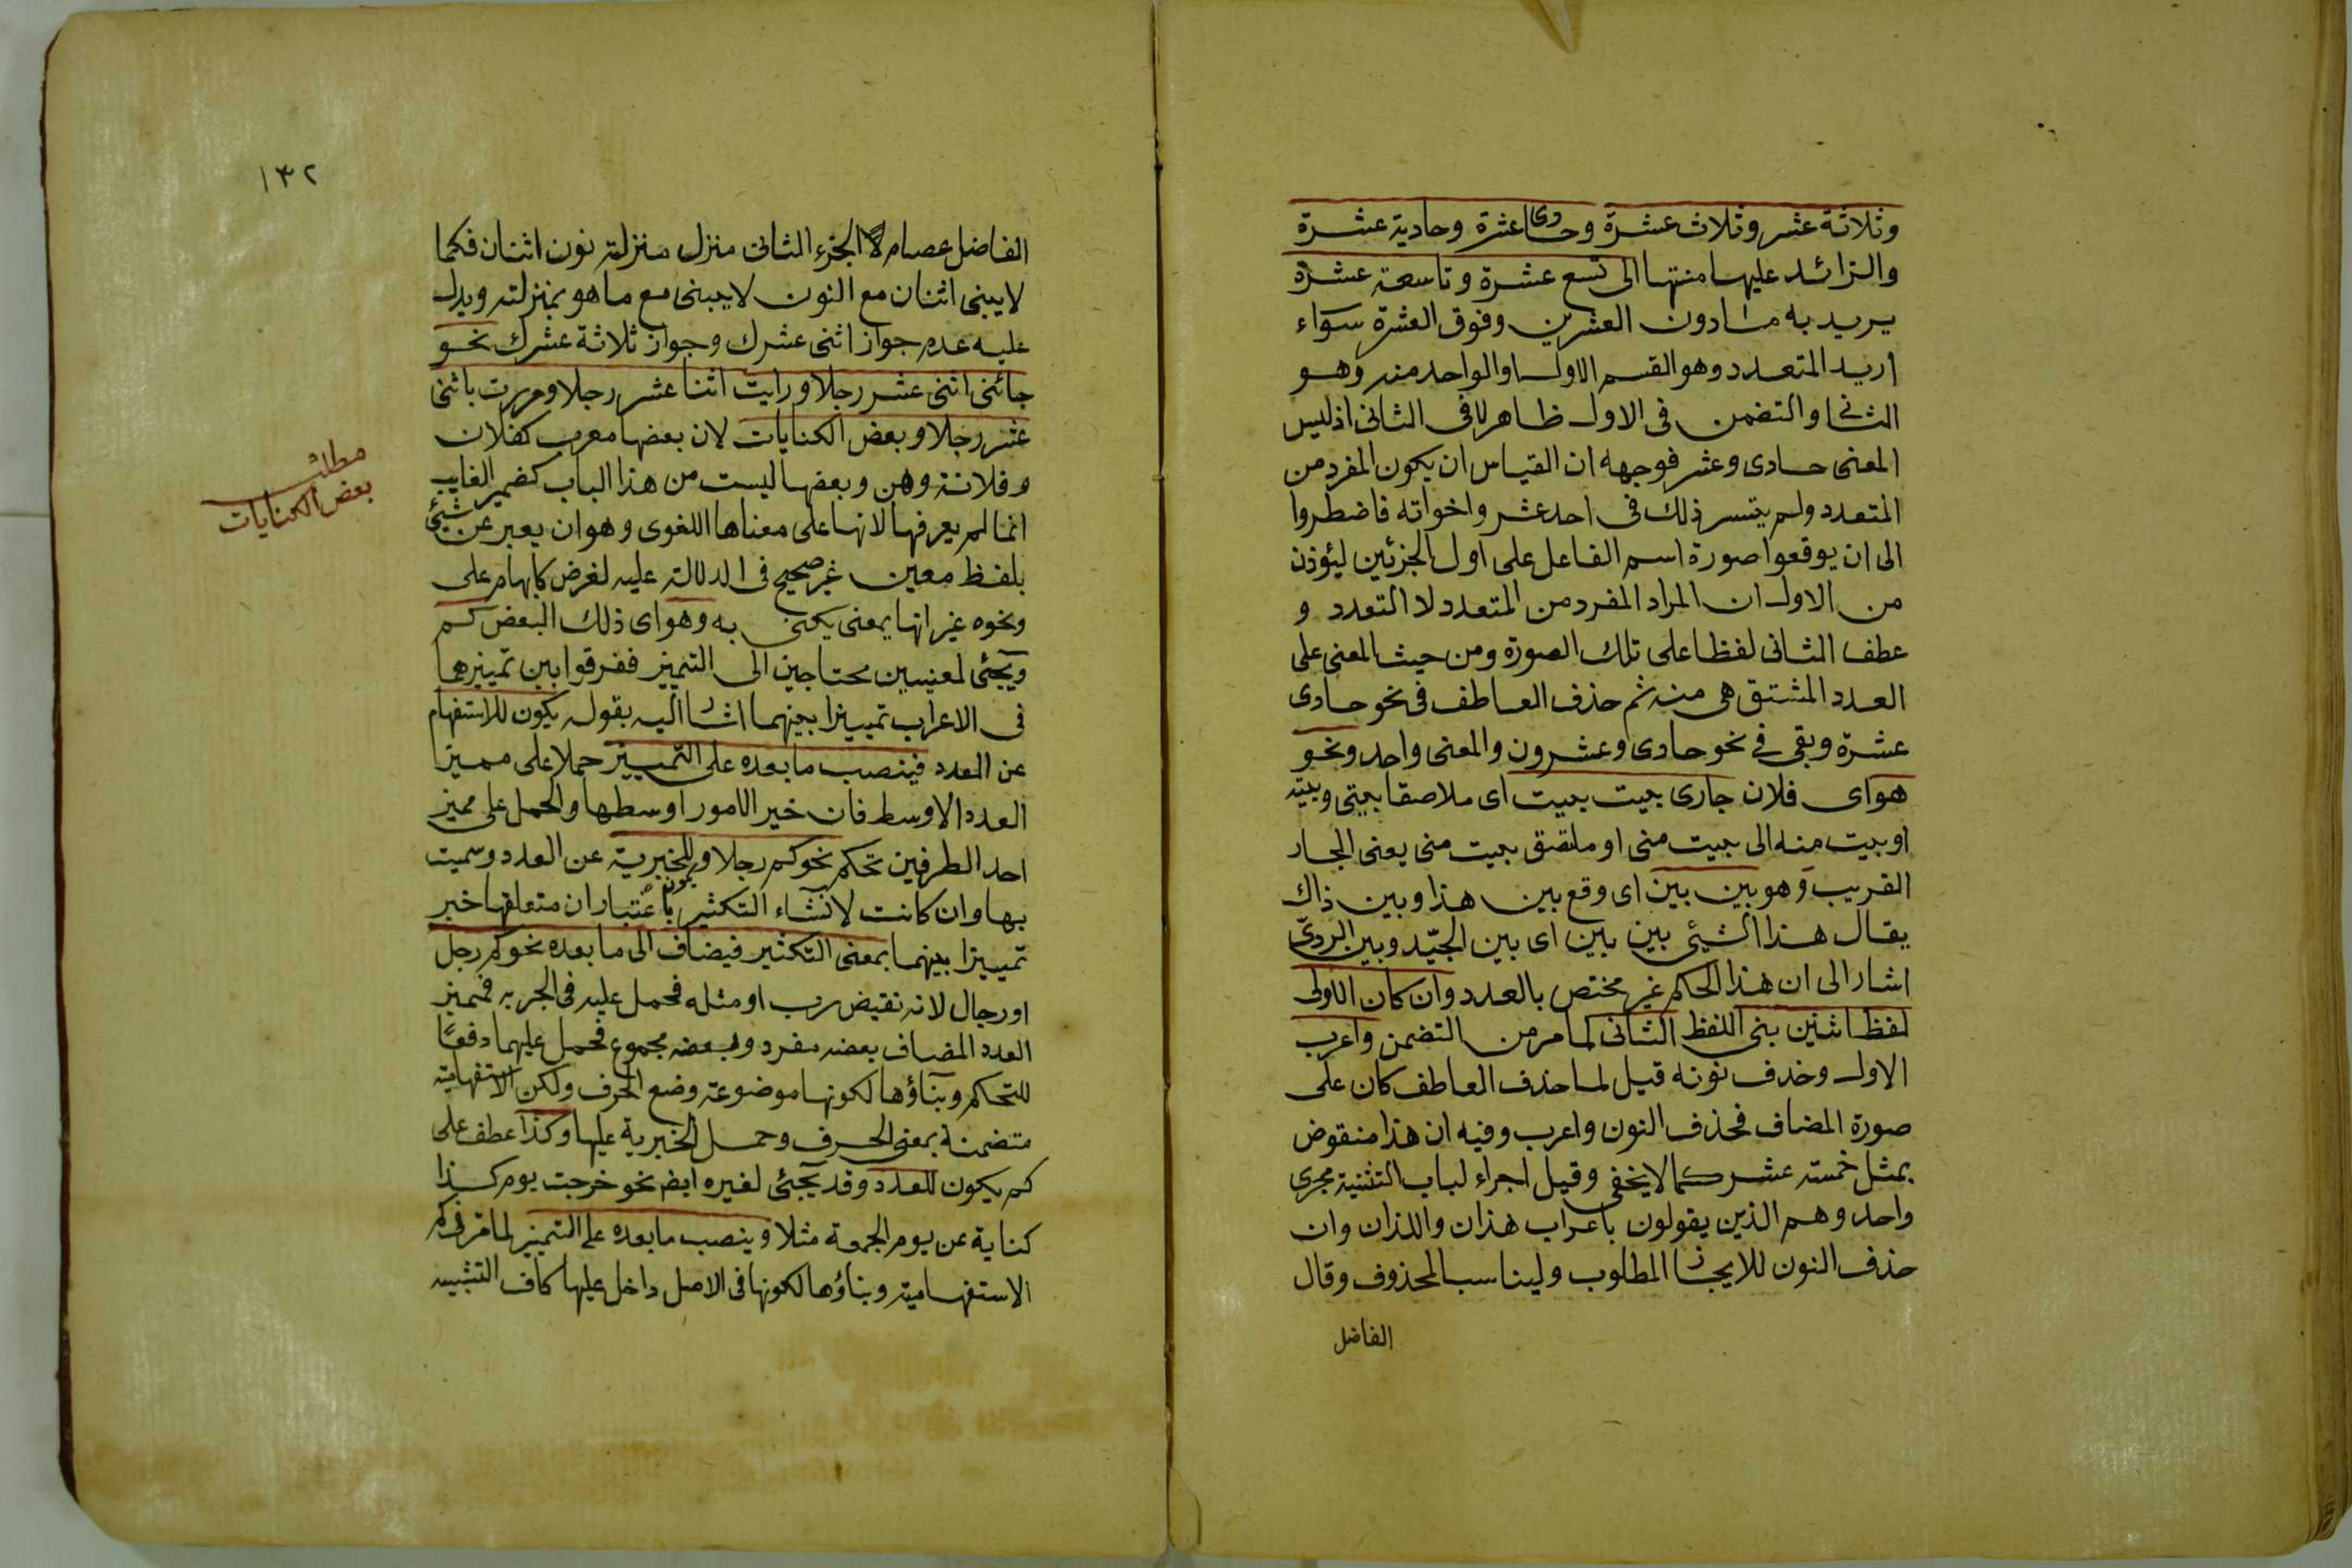 وثلاثة عشر وثلاث عشرة وحادى عشرة وحادية عشرة
والزائد عليها منتها الى تسع عشرة وتاسعة عشرة
يريد به ما دون العشرين وفوق العشرة سواء
اريد المتعدد وهو القسم الاول او الواحد منه وهو
الثانى والتضمن فى الاول ظاهر لا فى الثانى اذ ليس
المعنى حادى وعشر فوجهه ان القياس ان يكون المفرد من
المتعدد ولم يتسر ذلك فى احد عشر واخواته فاضطروا
الى ان يوقعوا صورة اسم الفاعل على اول الجزئين ليؤذن
من الاول ان المراد المفرد من المتعدد لا التعدد و
عطف الثانى لفظا على تلك الصورة ومن حيث المعنى على
العدد المشتق هى منه ثم حذف العاطف فى نحو حادى
عشرة وبقى فى نحو حادى وعشرون والمعنى واحد ونحو
هو اى فلان جارى بيت بيت اى ملاصقا بيتى وبيته
او بيت منه الى بيت منى او ملتصق بيت منى يعنى الجار
القريب وهو بين بين اى وقع بين هذا وبين ذاك
يقال هذا الشيئ بين بين اى بين الجيّد وبين الردىّ
اشار الى ان هذا الحكم غير مختص بالعدد وان كان الاولى
لفظ اثنين بنى اللفظ الثانى لما مر من التضمن واعرب
الاول وحذف نونه قيل لما حذف العاطف كان على
صورة المضاف فحذف النون واعرب وفيه ان هذا منقوض
بمثل خمسة عشر كما لا يخفى وقيل اجراء لباب التثنية مجرى
واحد وهم الذين يقولون باعراب هذان واللذان وان
حذف النون للايجاز المطلوب وليناسب المحذوف وقال
الفاضل
١٣٢
الفاضل عصام لان الجزء الثانى منزل منزلة نون اثنان فكما
لا يبنى اثنان مع النون لا يبنى مع ما هو بمنزلته ويدل
عليه عدم جواز اثنى عشرك وجواز ثلاثة عشرك نحو
جائنى اثنى عشر رجلا ورايت اثنا عشر رجلا ومررت باثنى
عشر رجلا وبعض الكنايات لان بعضها معرب كفلان
وفلانة وهن وبعضها ليست من هذا الباب كضمير الغايب
انما لم يعرفها لانها على معناها اللغوى وهو ان يعبر عن شيئ
بلفظ معين غير صحيح فى الدلالة عليه لغرض كابهام على
ونحوه غير انها بمعنى يكنى به وهو اى ذلك البعض كم
ويجئى لمعنيين محتاجين الى التميز ففرقوا بين تميزهما
فى الاعراب تمييزا بينهما اشار اليه بقوله يكون للاستفهام
عن العدد فينصب ما بعده على التمييز حملا على مميز
العدد الاوسط فان خير الامور اوسطها والحمل على مميز
احد الطرفين تحكم نحو كم رجلا وللخبرية عن العدد وسميت
بها وان كانت لانشاء التكثير باعتبار ان متعلقها خبر
تمييزا بينهما بمعنى التكثير فيضاف الى ما بعده نحو كم رجل
او رجال لانه نقيض رب او مثله فحمل عليه فى الجر به فمميز
العدد المضاف بعضه مفرد وبعضه مجموع فحمل عليهما دفعًا
للتحكم وبناؤها لكونها موضوعة وضع الحرف ولكن الاستفهامية
متضمنة بمعنى الحرف وحمل الخبرية عليها وكذا عطف على
كم يكون للعدد وقد يجئى لغيره ايضا نحو خرجت يوم كذا
كناية عن يوم الجمعة مثلا وينصب ما بعده على التميز لما مر فى كم
الاستفهامية وبناؤها لكونها فى الاصل داخل عليها كاف التشبيه
مطلب
بعض الكنايات